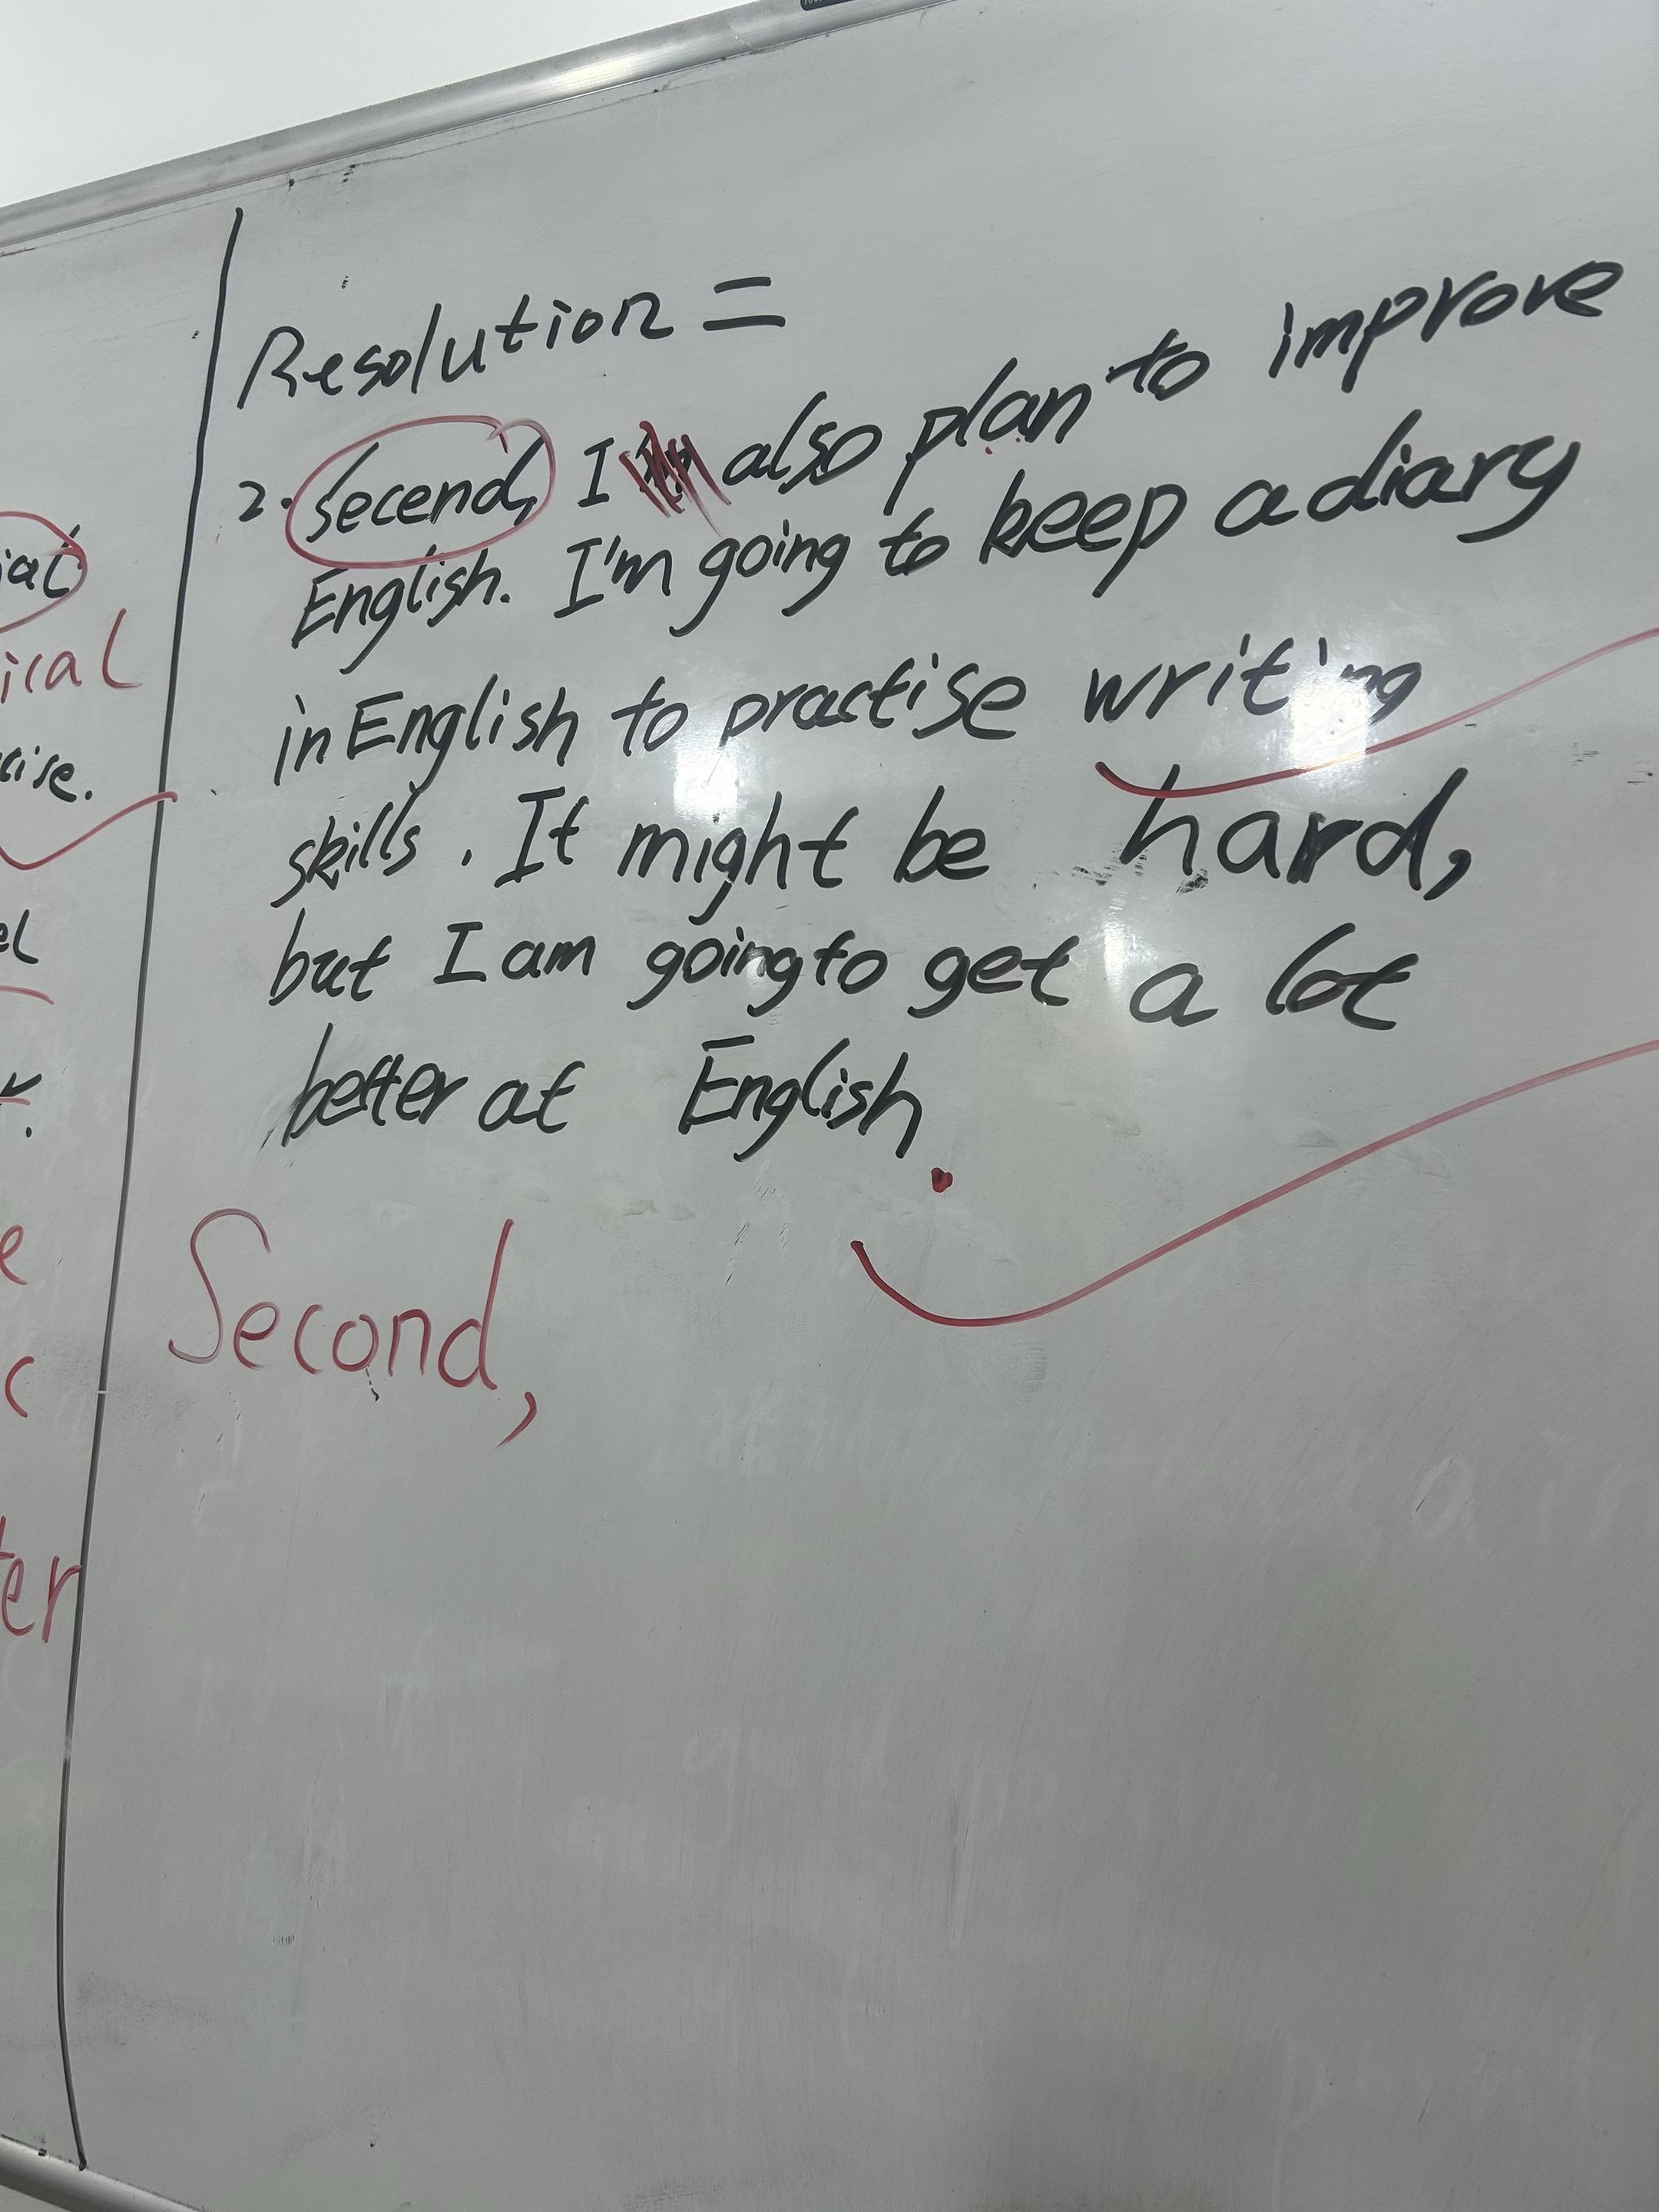 Resolution =
2. Secend, I also plan to improve
English. I'm going to keep a diary
in English to practise writing
skills. It might be hard,
but I am going to get a lot
better at English.
Second,